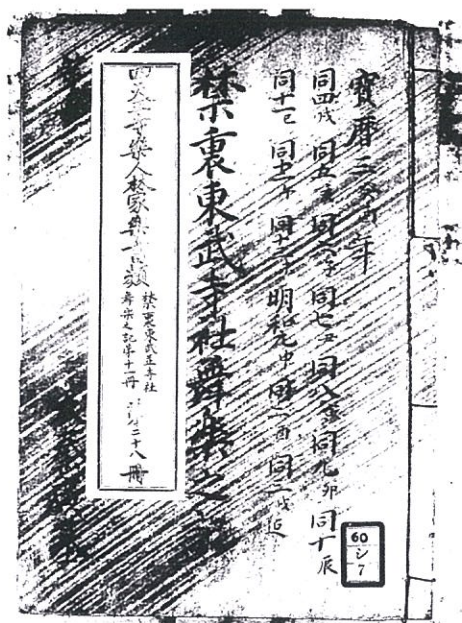 寳暦 年
同四戌 同五亥 同六子 同七丑 同八寅 同九卯 同十辰
同十一巳 同十二午 同十三未 明和元申 同二酉 同三戌迄
禁裏東武寺社舞樂之
四天王寺楽人林家楽書類
禁裏東武並寺社
舞楽之記第十一冊
二十八冊
60
シ
7